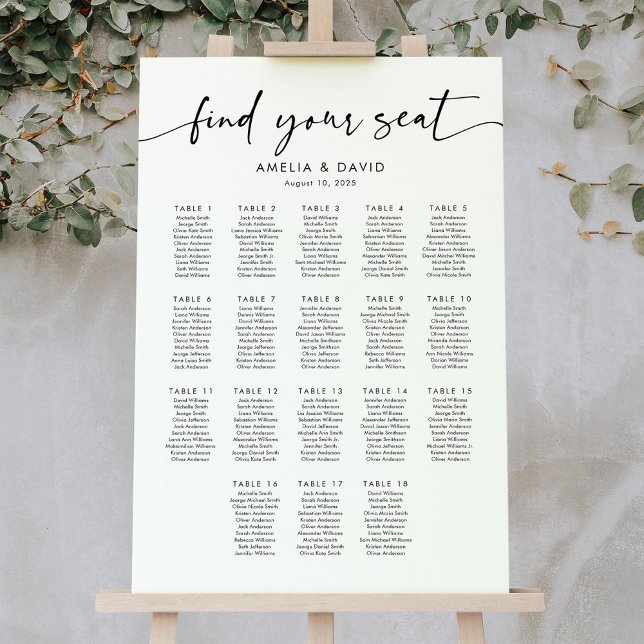 find your seat
AMELIA & DAVID
August 10, 2025
TABLE 1
Michelle Smith
George Smith
Olivia Kate Smith
Kristen Anderson
Oliver Anderson
Jack Anderson
Sarah Anderson
Liana Williams
Seth Williams
David Williams
TABLE 2
Jack Anderson
Sarah Anderson
Liana Williams
Sebastian Williams
David Williams
Michelle Smith
George Smith Jr.
Jennifer Smith
Kristen Anderson
Oliver Anderson
TABLE 3
David Williams
Michelle Smith
George Smith
Olivia Maria Smith
Jennifer Anderson
Sarah Anderson
Liana Williams
Sam Michael Williams
Kristen Anderson
Oliver Anderson
TABLE 4
Jack Anderson
Sarah Anderson
Liana Williams
Sebastian Williams
Kristen Anderson
Oliver Anderson
Alexander Williams
Michelle Smith
George Daniel Smith
Olivia Kate Smith
TABLE 5
Jack Anderson
Sarah Anderson
Kristen Anderson
Oliver Anderson
Liana Williams
David Mitchel Williams
Michelle Smith
George Smith
Olivia Nicole Smith
TABLE 6
Sarah Anderson
Liana Williams
Jennifer Williams
Kristen Anderson
Oliver Anderson
David Williams
Michelle Smith
George Jefferson
Anna Luisa Smith
Jack Anderson
TABLE 7
Liana Williams
Dennis Williams
David Williams
Jennifer Anderson
Sarah Anderson
Michelle Smith
George Jefferson
Olivia Jefferson
Kristen Anderson
Oliver Anderson
TABLE 8
Jennifer Anderson
Sarah Anderson
Liana Williams
Alexander Jefferson
David Jason Williams
Michelle Smithson
George Smithson
Olivia Smithson
Kristen Anderson
Oliver Anderson
TABLE 9
Michelle Smith
George Michael Smith
Olivia Nicole Smith
Kristen Anderson
Oliver Anderson
Jack Anderson
Sarah Anderson
Rebecca Williams
Seth Jefferson
Jennifer Williams
TABLE 10
Michelle Smith
George Smith
Kristen Anderson
Oliver Anderson
Miranda Anderson
Sarah Anderson
Ann Nicole Williams
Dorian Williams
David Williams
TABLE 11
David Williams
Michelle Smith
George Smith
Olivia Jefferson
Jack Anderson
Sarah Anderson
Liana Ann Williams
Maksimilian Williams
Kristen Anderson
Oliver Anderson
TABLE 12
Jack Anderson
Sarah Anderson
Liana Williams
Sebastian Williams
Kristen Anderson
Oliver Anderson
Alexander Williams
Michelle Smith
George Daniel Smith
Olivia Kate Smith
TABLE 13
Jack Anderson
Sarah Anderson
Lia Jessica Williams
Sebastian Williams
David Williams
Michelle Ann Smith
George Smith Jr.
Jennifer Smith
Kristen Anderson
Oliver Anderson
TABLE 14
Jennifer Anderson
Sarah Anderson
Liana Williams
Alexander Williams
David Jason Williams
Michelle Smith
George Smith
Olivia Smith
Kristen Anderson
Oliver Anderson
TABLE 15
Michelle Smith
George Smith
David Williams
Olivia Maria Smith
Jennifer Anderson
Sarah Anderson
Liana Williams
Michael Williams Jr.
Kristen Anderson
Oliver Anderson
TABLE 16
Michelle Smith
George Michael Smith
Olivia Nicole Smith
Kristen Anderson
Oliver Anderson
Jack Anderson
Sarah Anderson
Rebecca Williams
Seth Jefferson
Jennifer Williams
TABLE 17
Jack Anderson
Sarah Anderson
Liana Williams
Sebastian Williams
Kristen Anderson
Oliver Anderson
Alexander Williams
Michelle Smith
George Daniel Smith
Olivia Kate Smith
TABLE 18
David Williams
Michelle Smith
George Smith
Olivia Maria Smith
Jennifer Anderson
Sarah Anderson
Liana Williams
Sam Michael Williams
Kristen Anderson
Oliver Anderson